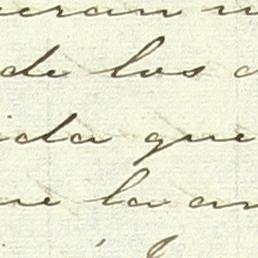 eran
de los
ida que
ue la an